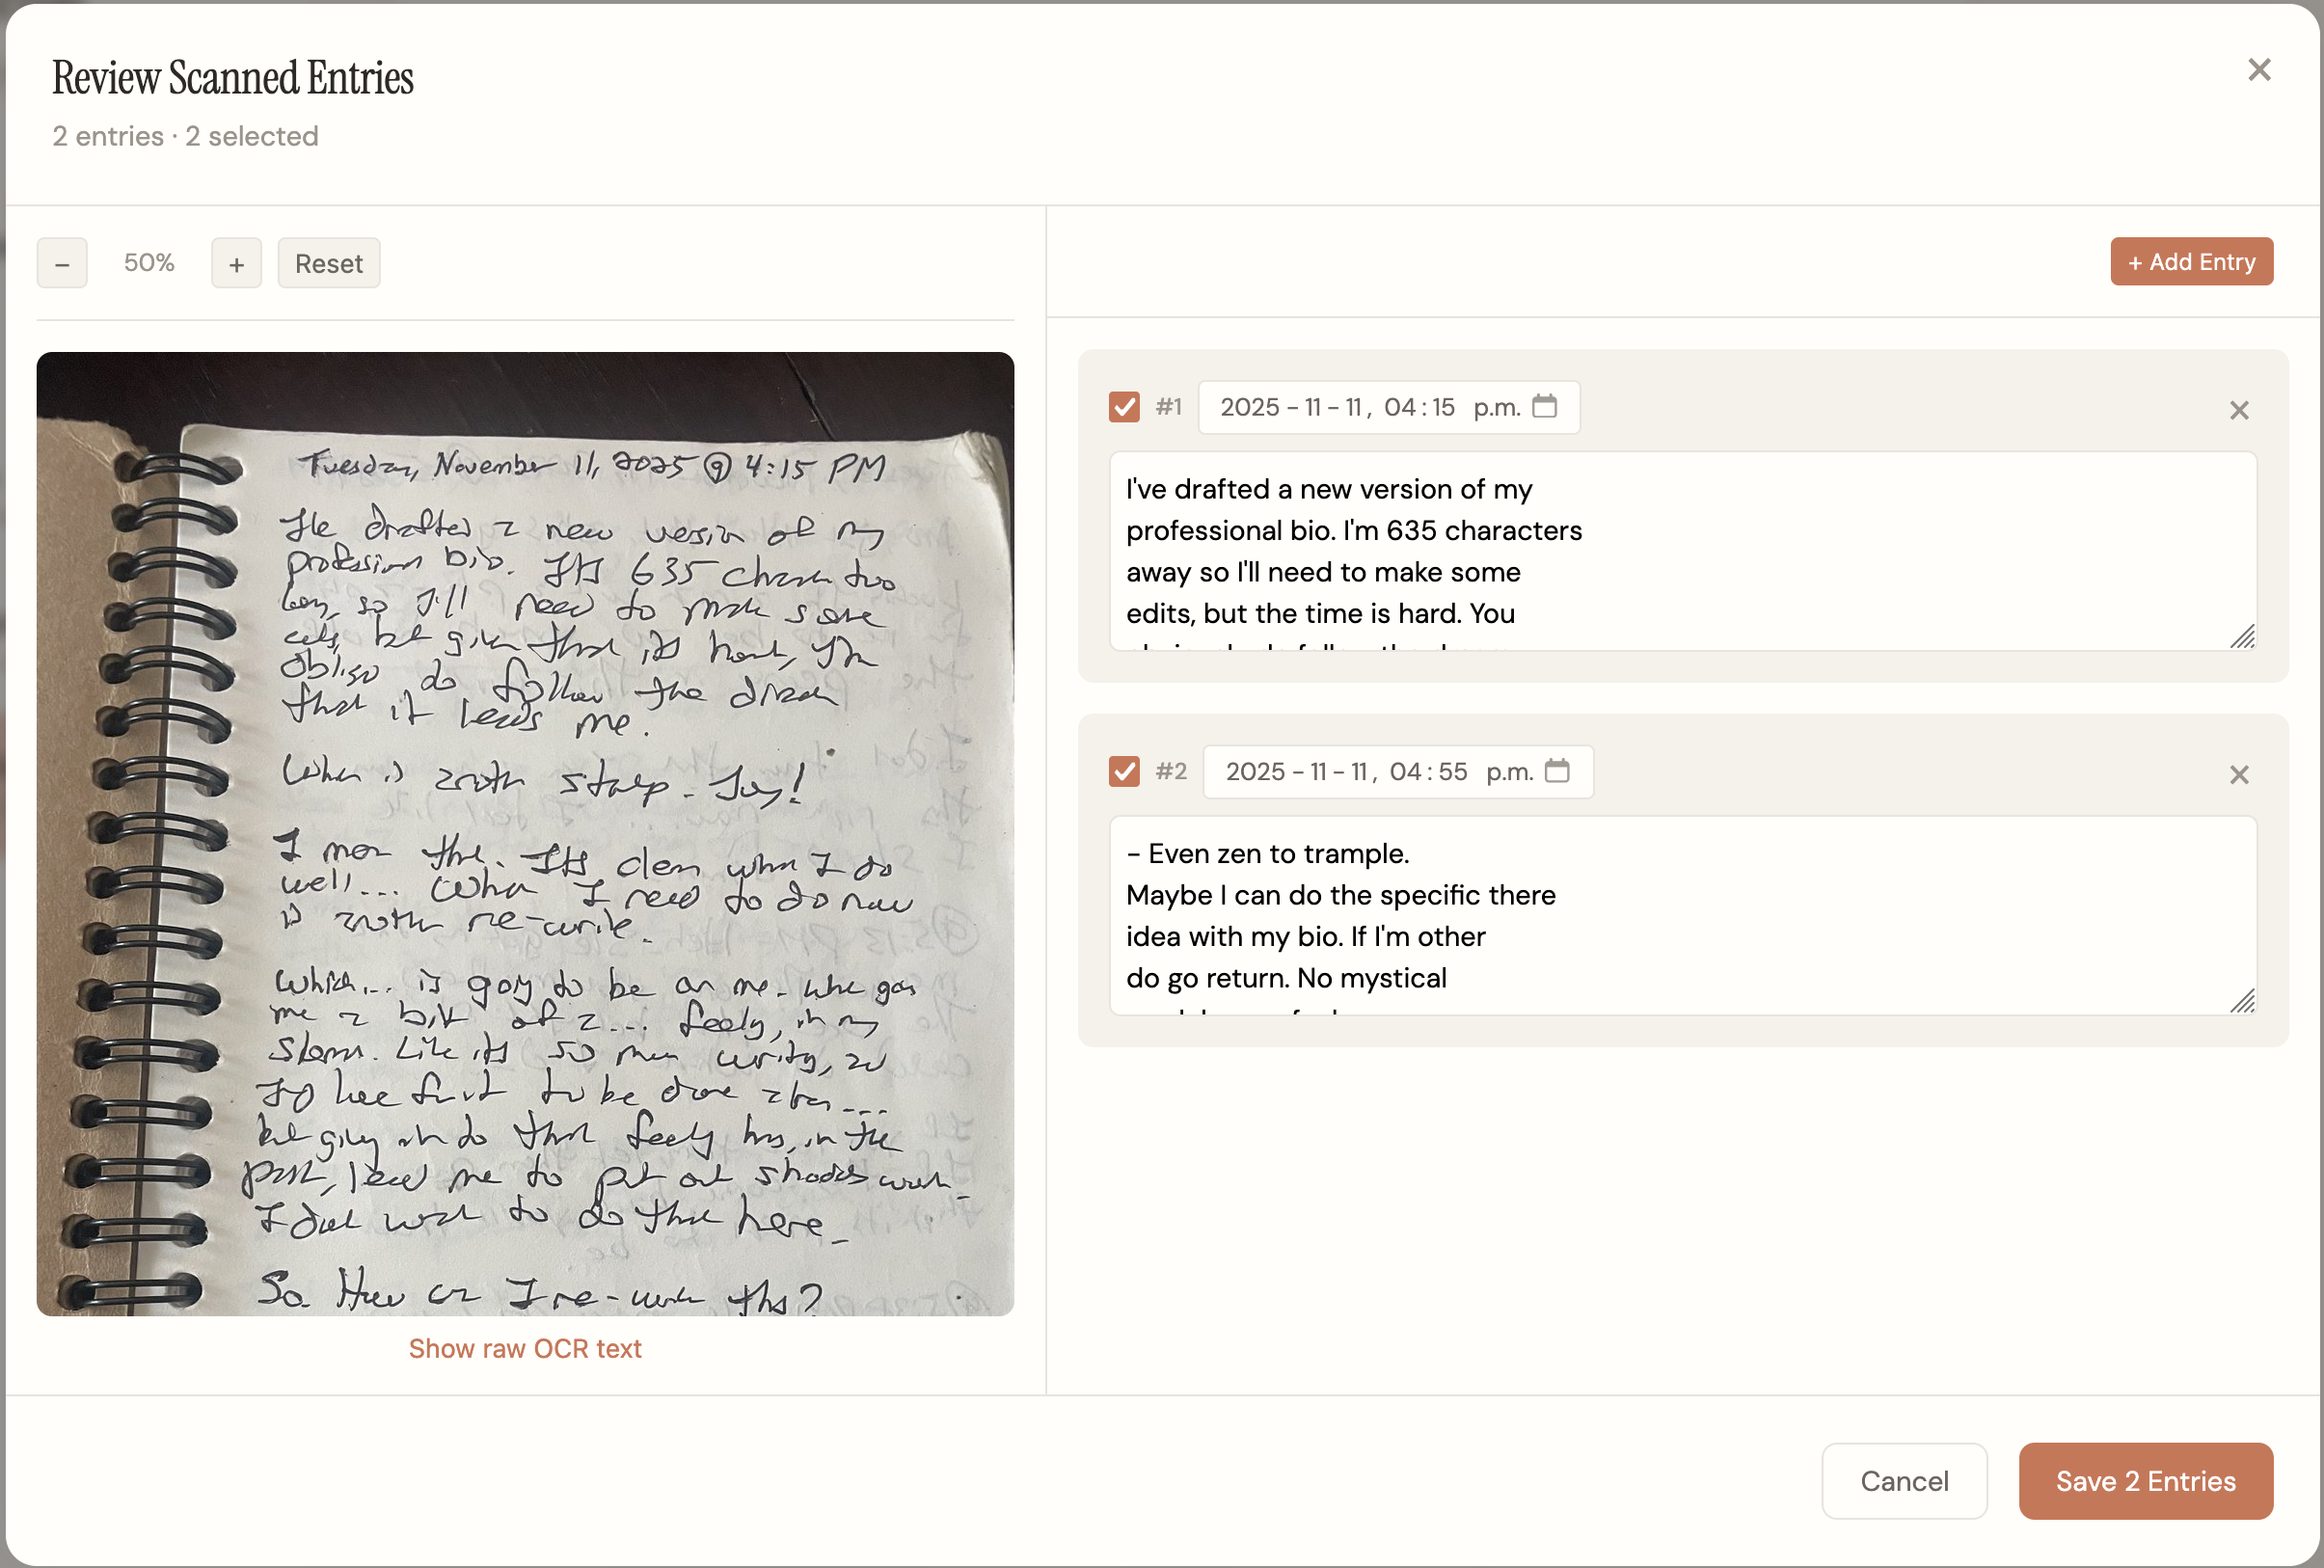 Review Scanned Entries
2 entries · 2 selected
×
−
50%
+
Reset
Tuesday, November 11, 2025 @ 4:15 PM
I've drafted a new version of my
profession bio. It's 635 chars too
long, so I'll need to make some
cuts, but given that its hard, I'm
obliged to follow the
that it leads me.
When is another step. Joy!
I mean this. It's clear what I do
well... What I need to do now
is another re-write.
Which... is going to be on me. Which gives
me a bit of a... feeling, in my
Like it's so much writing, and
I'd like for it to be done
but giving in to that feeling has, in the
past, lead me to put out work.
I don't want to do that here.
So. How can I re-work this?
Show raw OCR text
+ Add Entry
#1
2025-11-11, 04:15 p.m.
×
I've drafted a new version of my
professional bio. I'm 635 characters
away so I'll need to make some
edits, but the time is hard. You
#2
2025-11-11, 04:55 p.m.
×
– Even zen to trample.
Maybe I can do the specific there
idea with my bio. If I'm other
do go return. No mystical
Cancel
Save 2 Entries